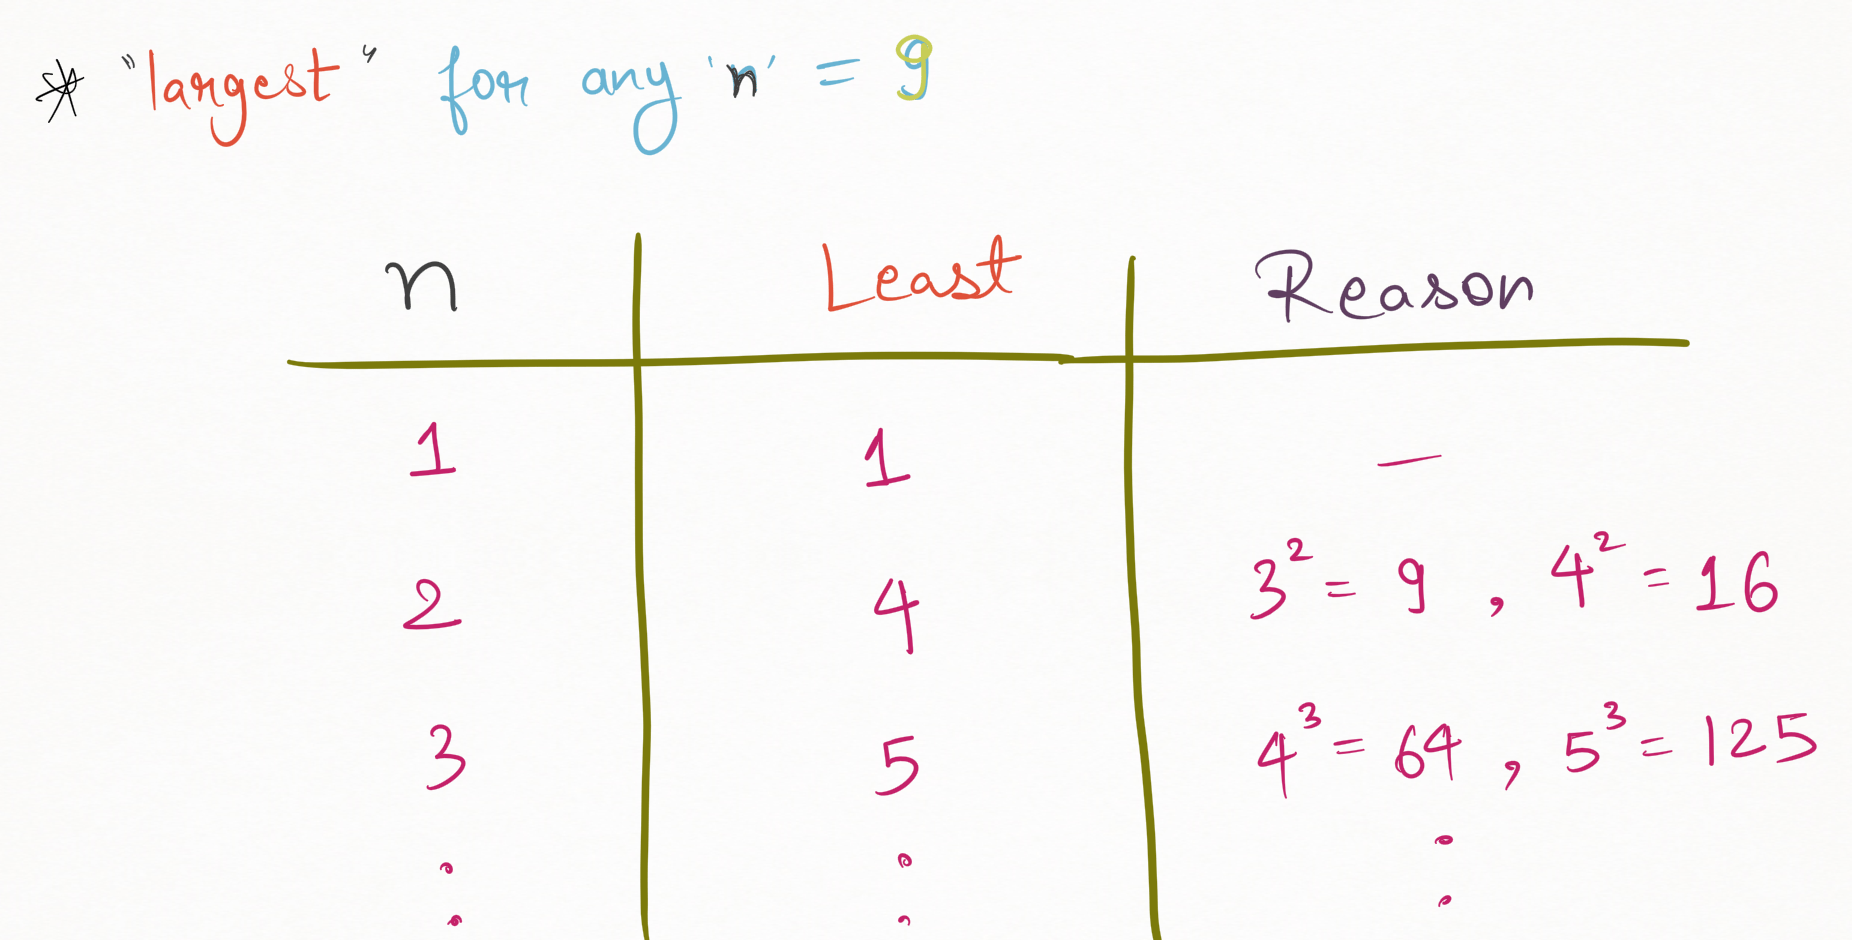 * "largest" for any 'n' = 9
n Least Reason
1 1 —
2 4 3² = 9 , 4² = 16
3 5 4³ = 64 , 5³ = 125